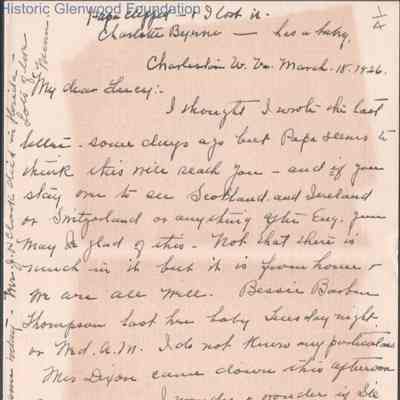 Historic Glenwood Foundation
Papa clipper - & I lost it.
Charlotte Byrne - has a baby.
1/4
Charleston W. Va. March. 18. 1926.
My dear Lucy:-
I thought I wrote the last
letter - some days ago but Papa seems to
think this will reach you - and if you
stay over to see Scotland and Ireland
or Switzerland or anything after Eng. you
may be glad of this - Not that there is
much in it but it is from home &
we are all well. Bessie Barber
Thompson lost her baby Tuesday night
or Wed. A.M. I do not know any particulars
Mrs Dixon came down this afternoon
I wonder if
died in Florida -